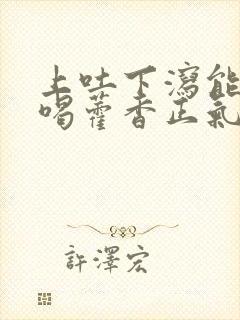 上吐下瀉能
喝藿香正氣
許澤宏